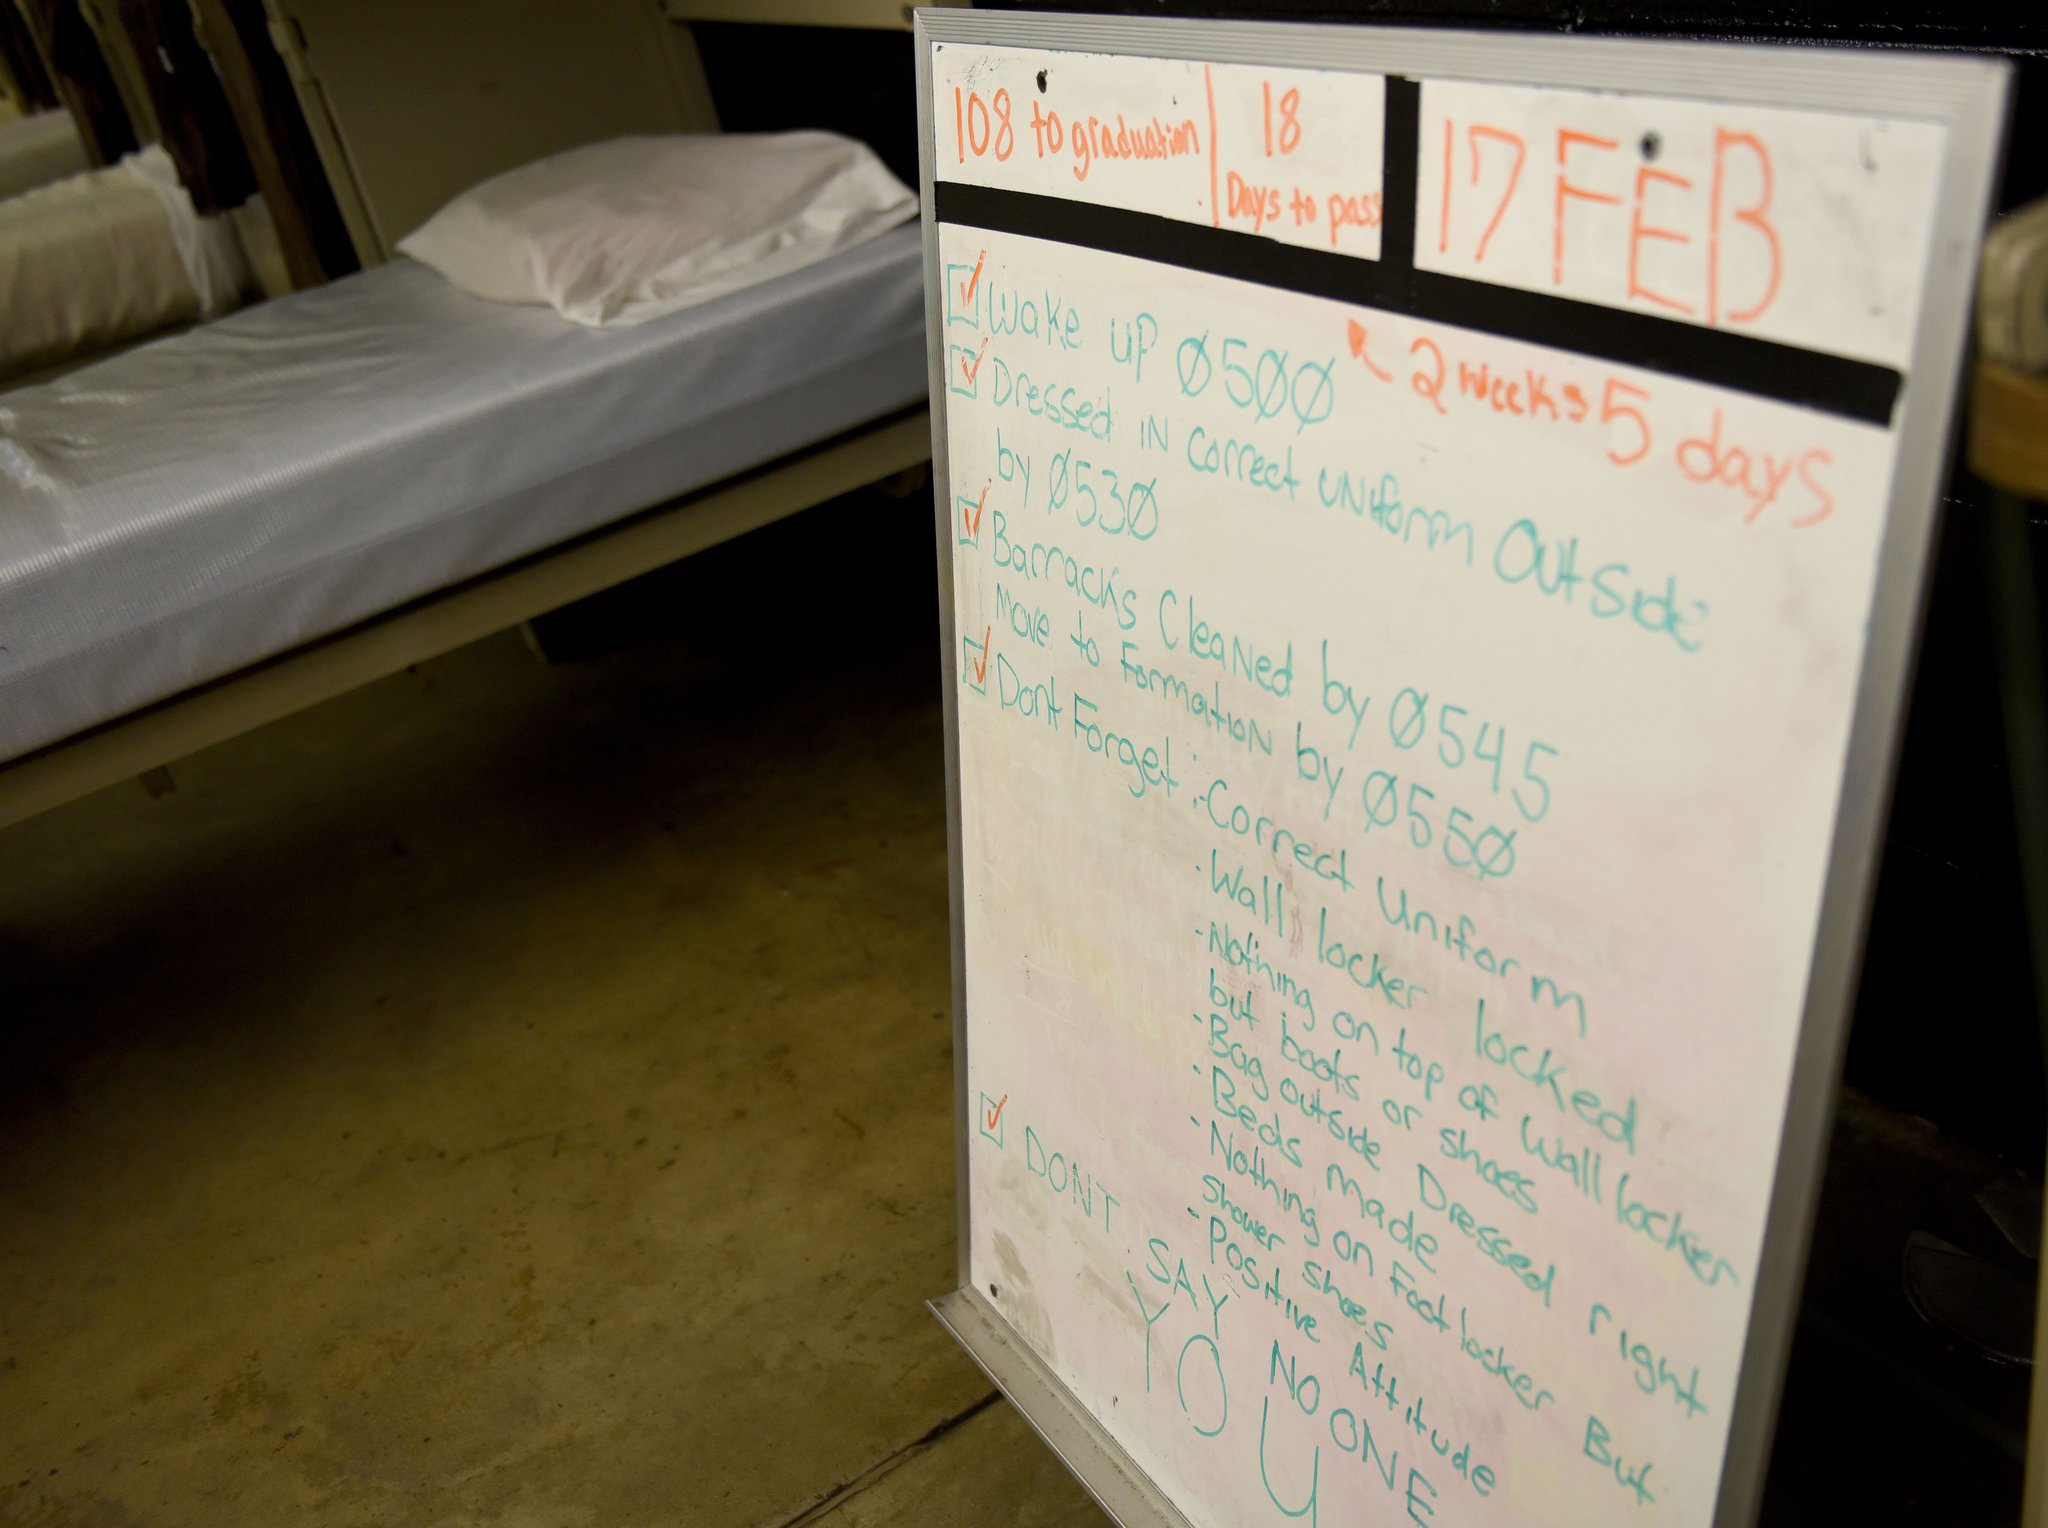 108 to graduation
18
Days to pass
17 FEB
2 weeks 5 days
Wake up 0500
Dressed in correct uniform Outside
by 0530
Barracks Cleaned by 0545
Move to Formation by 0550
Dont Forget: - Correct Uniform
· Wall locker locked
· Nothing on top of Wall locker
but boots or shoes
· Bag outside Dressed right
· Beds made
· Nothing on Footlocker But
shower shoes
· Positive Attitude
DONT SAY NO ONE
YOU